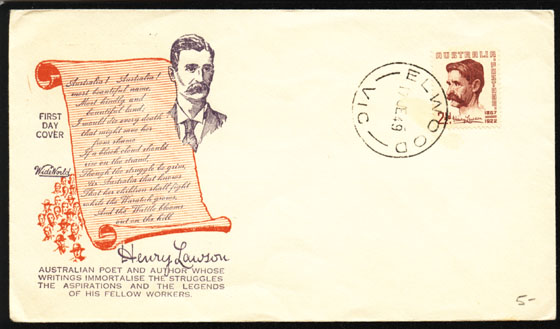 Australia! Australia!
most beautiful name,
Most kindly and
bountiful land;
I would die every death
that might save her
from shame
If a black cloud should
rise on the strand,
Though the struggle be grim,
'tis Australia that knows
That her children shall fight
while the Waratah grows,
And the Wattle blooms
out on the hill
FIRST
DAY
COVER
WideWorld
Henry Lawson
AUSTRALIAN POET AND AUTHOR WHOSE
WRITINGS IMMORTALISE THE STRUGGLES
THE ASPIRATIONS AND THE LEGENDS
OF HIS FELLOW WORKERS.
ELWOOD
17 JE 49
VIC
AUSTRALIA
1867
1922
Henry Lawson
5-